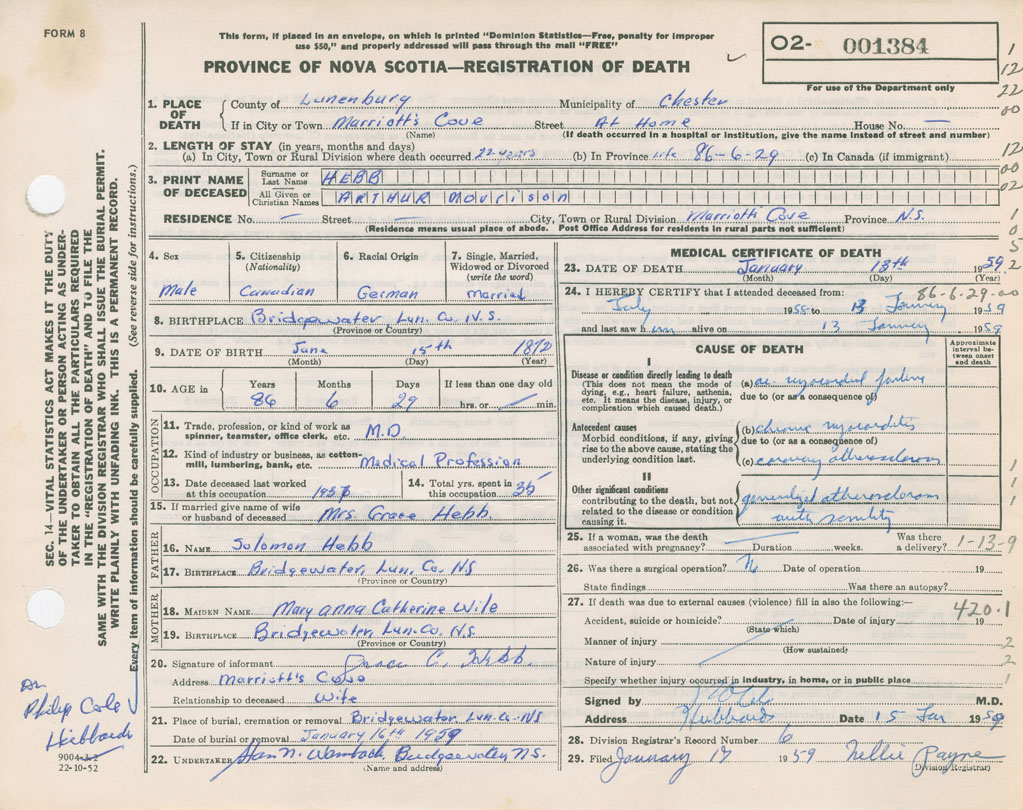 FORM 8
This form, if placed in an envelope, on which is printed "Dominion Statistics—Free, penalty for improper
use $50," and properly addressed will pass through the mail "FREE"
O2- 001384
For use of the Department only
PROVINCE OF NOVA SCOTIA—REGISTRATION OF DEATH
1. PLACE OF DEATH County of Lunenburg Municipality of Chester
If in City or Town Marriott's Cove Street At Home House No. —
(Name) (If death occurred in a hospital or institution, give the name instead of street and number)
2. LENGTH OF STAY (in years, months and days)
(a) In City, Town or Rural Division where death occurred 22 years (b) In Province Life 86-6-29 (c) In Canada (if immigrant)
3. PRINT NAME OF DECEASED Surname or Last Name HEBB
All Given or Christian Names ARTHUR Morrison
RESIDENCE No. — Street — City, Town or Rural Division Marriotts Cove Province N.S.
(Residence means usual place of abode. Post Office Address for residents in rural parts not sufficient)
4. Sex Male
5. Citizenship (Nationality) Canadian
6. Racial Origin German
7. Single, Married, Widowed or Divorced (write the word) Married
8. BIRTHPLACE Bridgewater Lun. Co. N.S.
(Province or Country)
9. DATE OF BIRTH June 15th 1872
(Month) (Day) (Year)
10. AGE in Years 86 Months 6 Days 29 If less than one day old hrs. or min.
OCCUPATION
11. Trade, profession, or kind of work as spinner, teamster, office clerk, etc. M.D.
12. Kind of industry or business, as cotton-mill, lumbering, bank, etc. Medical Profession
13. Date deceased last worked at this occupation
14. Total yrs. spent in this occupation 35
15. If married give name of wife or husband of deceased Mrs Grace Hebb
FATHER
16. NAME Solomon Hebb
17. BIRTHPLACE Bridgewater, Lun. Co. N.S
(Province or Country)
MOTHER
18. MAIDEN NAME Mary Anna Catherine Wile
19. BIRTHPLACE Bridgewater, Lun. Co. N.S.
(Province or Country)
20. Signature of informant Grace C. Hebb.
Address Marriott's Cove
Relationship to deceased Wife
21. Place of burial, cremation or removal Bridgewater Lun. Co. N.S
Date of burial or removal January 16th 1959
22. UNDERTAKER Bridgewater N.S.
(Name and address)
MEDICAL CERTIFICATE OF DEATH
23. DATE OF DEATH January 13th 1959
(Month) (Day)
24. I HEREBY CERTIFY that I attended deceased from: 86-6-29-00
July 1958 to 13 January 1959
and last saw him alive on 13 January 1959
CAUSE OF DEATH
Approximate interval between onset and death
I
Disease or condition directly leading to death
(This does not mean the mode of dying, e.g., heart failure, asthenia, etc. It means the disease, injury, or complication which caused death.)
(a) ac. myocardial failure
due to (or as a consequence of)
Antecedent causes
Morbid conditions, if any, giving rise to the above cause, stating the underlying condition last.
(b) chronic myocarditis
due to (or as a consequence of)
(c) coronary atherosclerosis
II
Other significant conditions
contributing to the death, but not related to the disease or condition causing it.
generalized atherosclerosis
with senility
25. If a woman, was the death associated with pregnancy? Duration weeks. Was there a delivery? 1-13-9
26. Was there a surgical operation? Date of operation 19
State findings Was there an autopsy?
27. If death was due to external causes (violence) fill in also the following:—
420.1
Accident, suicide or homicide? Date of injury 19
(State which)
Manner of injury 2
(How sustained)
Nature of injury 2
Specify whether injury occurred in industry, in home, or in public place 1
Signed by M.D.
Address Hubbards Date 15 Jan 1959
28. Division Registrar's Record Number 6
29. Filed January 17 1959 Nellie Payne
(Division Registrar)
SEC. 14—VITAL STATISTICS ACT MAKES IT THE DUTY
OF THE UNDERTAKER OR PERSON ACTING AS UNDER-
TAKER TO OBTAIN ALL THE PARTICULARS REQUIRED
IN THE "REGISTRATION OF DEATH" AND TO FILE THE
SAME WITH THE DIVISION REGISTRAR WHO SHALL ISSUE THE BURIAL PERMIT.
WRITE PLAINLY WITH UNFADING INK. THIS IS A PERMANENT RECORD.
Every item of information should be carefully supplied. (See reverse side for instructions.)
Dr.
Philip Cole
Hubbards
22-10-52
1
12
22
00
12
00
02
1
0
5
2
1
1
1